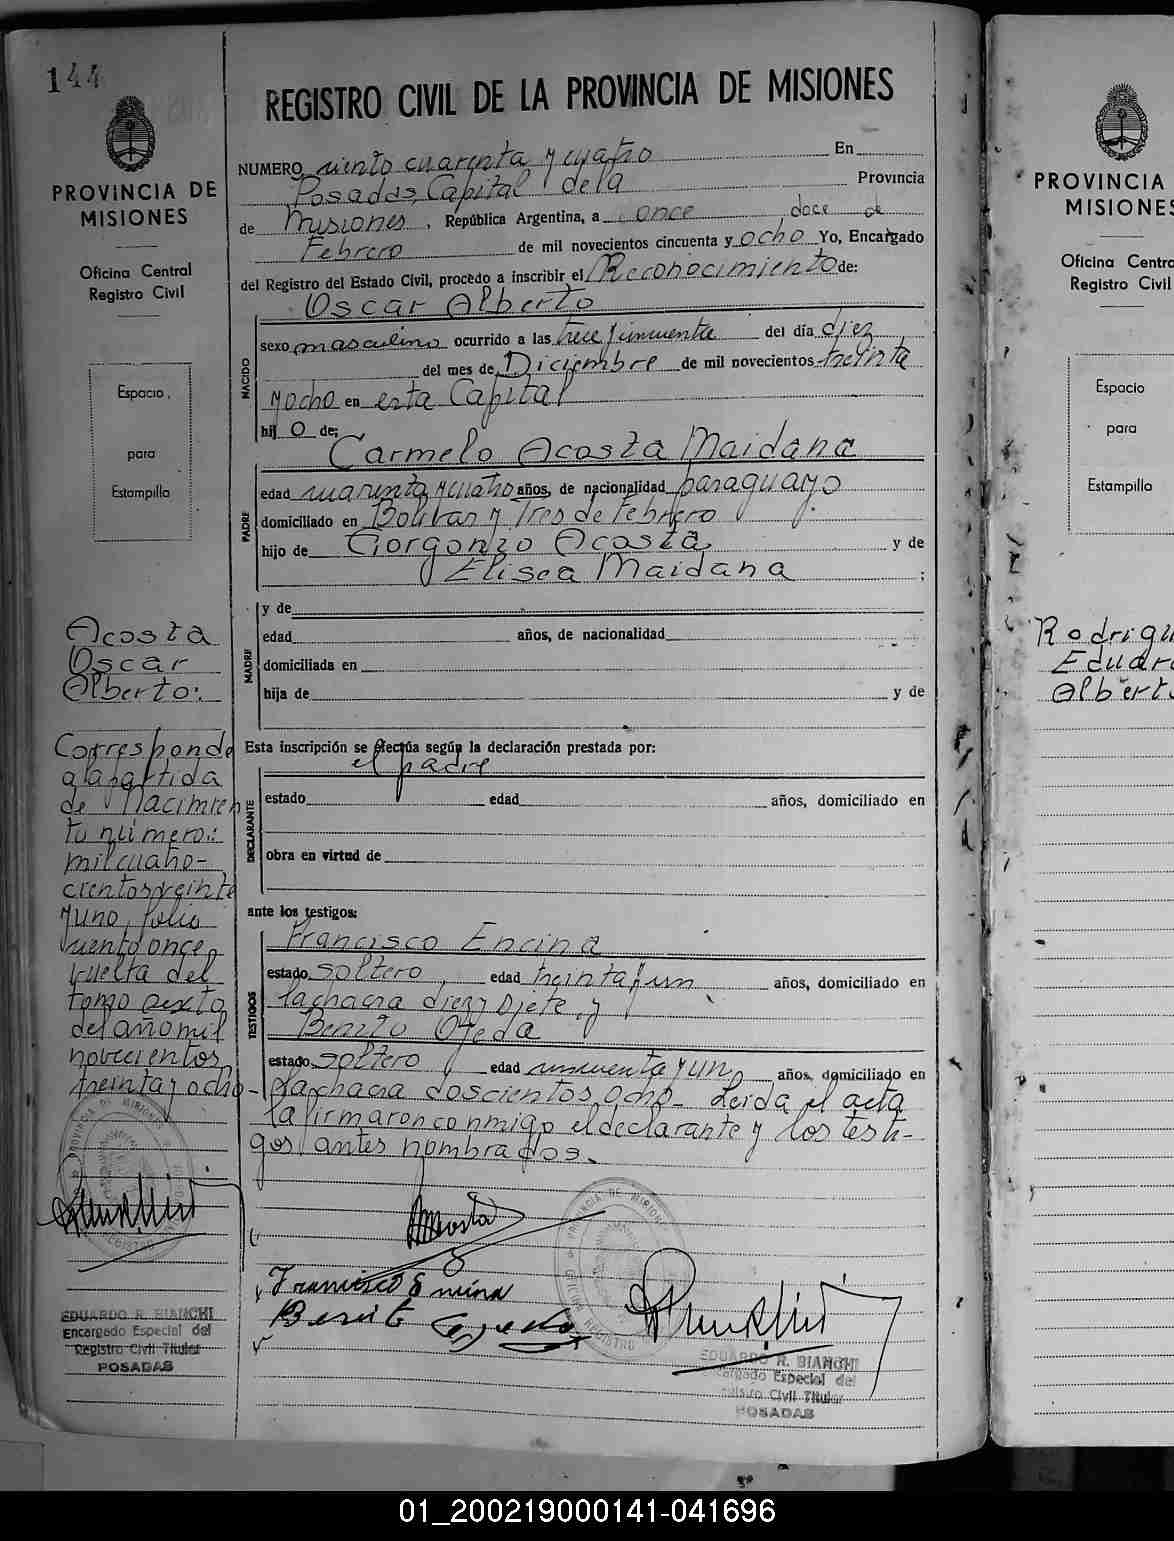 144
PROVINCIA DE
MISIONES
Oficina Central
Registro Civil
Espacio
para
Estampilla
Acosta
Oscar
Alberto.
Corresponde
a la partida
de Nacimien
to número:
mil cuatro-
cientos veinte
y uno, folio
ciento once
vuelta del
tomo sexto
del año mil
novecientos
treinta y ocho-
EDUARDO R. BIANCHI
Encargado Especial del
Registro Civil Titular
POSADAS
REGISTRO CIVIL DE LA PROVINCIA DE MISIONES
NUMERO ciento cuarenta y cuatro En
Posadas, Capital de la Provincia
de Misiones, República Argentina, a once doce de
Febrero de mil novecientos cincuenta y ocho Yo, Encargado
del Registro del Estado Civil, procedo a inscribir el Reconocimiento de:
Oscar Alberto
NACIDO
sexo masculino ocurrido a las trece y cincuenta del día diez
del mes de Diciembre de mil novecientos treinta
y ocho en esta Capital
hij o de:
Carmelo Acosta Maidana
PADRE
edad cuarenta y cuatro años, de nacionalidad paraguayo
domiciliado en Bolivar y Tres de Febrero
hijo de Gorgonzo Acosta y de
Elisea Maidana ;
MADRE
y de
edad años, de nacionalidad
domiciliada en
hija de y de
Esta inscripción se efectúa según la declaración prestada por:
el padre
DECLARANTE
estado edad años, domiciliado en
obra en virtud de
ante los testigos:
Francisco Encina
TESTIGOS
estado soltero edad treinta y un años, domiciliado en
la chacra diez y siete, y
Benito Ojeda
estado soltero edad cincuenta y un años, domiciliado en
la chacra doscientos ocho- Leida el acta
la firmaron conmigo el declarante y los testi-
gos antes nombrados.
Acosta
Francisco Encina
Benito Ojeda
EDUARDO R. BIANCHI
Encargado Especial del
Registro Civil Titular
POSADAS
PROVINCIA
MISIONES
Oficina Centra
Registro Civil
Espacio
para
Estampilla
Rodrigu
Eduar
Albert
01_200219000141-041696